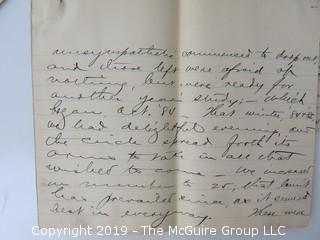 unsympathetic commenced to drop out,
and those left were afraid of
nothing, but were ready for
another years study; - which
began Oct. '84 - That winter, '84-85
we had delightful evenings, and
the circle spread forth its
arms to take in all that
wished to come - We increased
in members to 25, that limit
has prevailed since, as it seemed
best in every way. There were
Copyright 2019 - The McGuire Group, LLC